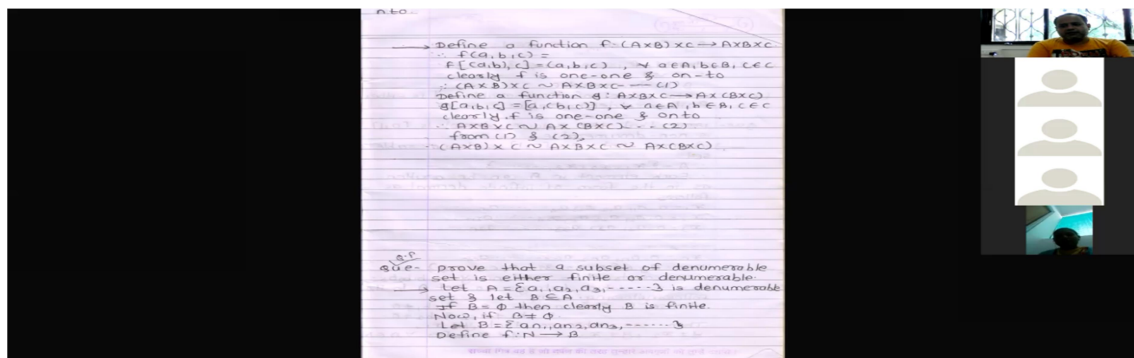 nto.
→ Define a function f: (A×B)×C → A×B×C
∴ f(a,b,c) =
f[(a,b),c] = (a,b,c) , ∀ a∈A, b∈B, c∈C
clearly f is one-one & on-to
∴ (A×B)×C ~ A×B×C --- (1)
Define a function g: A×B×C → A×(B×C)
g[a,b,c] = [a,(b,c)] , ∀ a∈A, b∈B, c∈C
clearly f is one-one & onto
∴ A×B×C ~ A×(B×C) --- (2)
from (1) & (2),
(A×B)×C ~ A×B×C ~ A×(B×C)
Q.P
Que- prove that a subset of denumerable
set is either finite or denumerable
→ Let A = {a1, a2, a3, ------} is denumerable
set & let B ⊆ A
If B = ϕ then clearly B is finite.
Now, if B ≠ ϕ
Let B = {an1, an2, an3, ------}
Define f: N → B